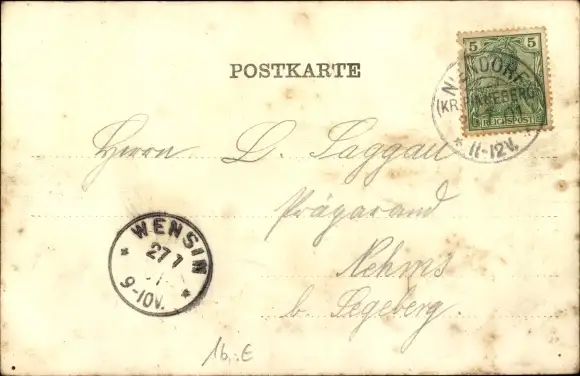 POSTKARTE
5 5
REICHSPOST
NIENDORF
(KR. PINNEBERG)
* 11-12V.
Herrn L. Saggau
Präparand
Nehms
b. Segeberg.
* WENSIN *
27 1
9-10V.
16,-E